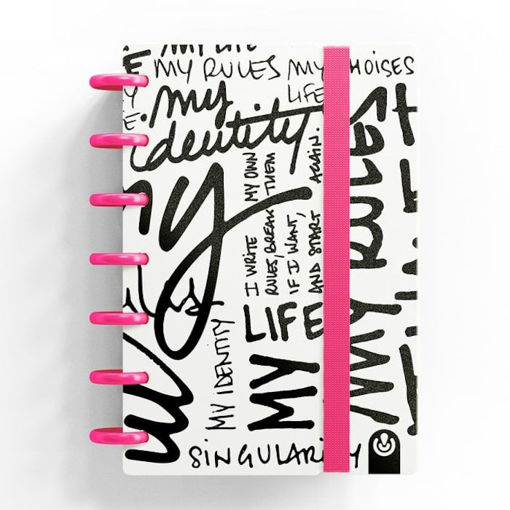 MY LIFE
MY RULES
MY CHOISES
LIFE
my
identity
my
I WRITE MY OWN
RULES, BREAK THEM
IF I WANT,
AND START AGAIN.
LIFE
MY
MY IDENTITY
SINGULARITY
MY RULES